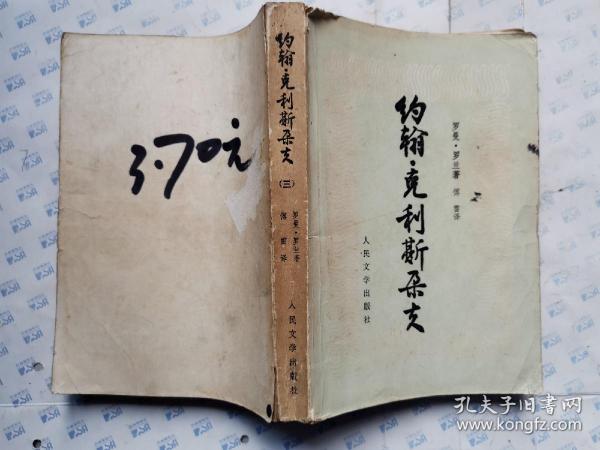 约翰·克利斯朵夫
罗曼·罗兰著
傅雷译
人民文学出版社
约翰·克利斯朵夫
(三)
罗曼·罗兰著
傅雷译
人民文学出版社
3.70元
孔夫子旧书网
www.kongfz.com